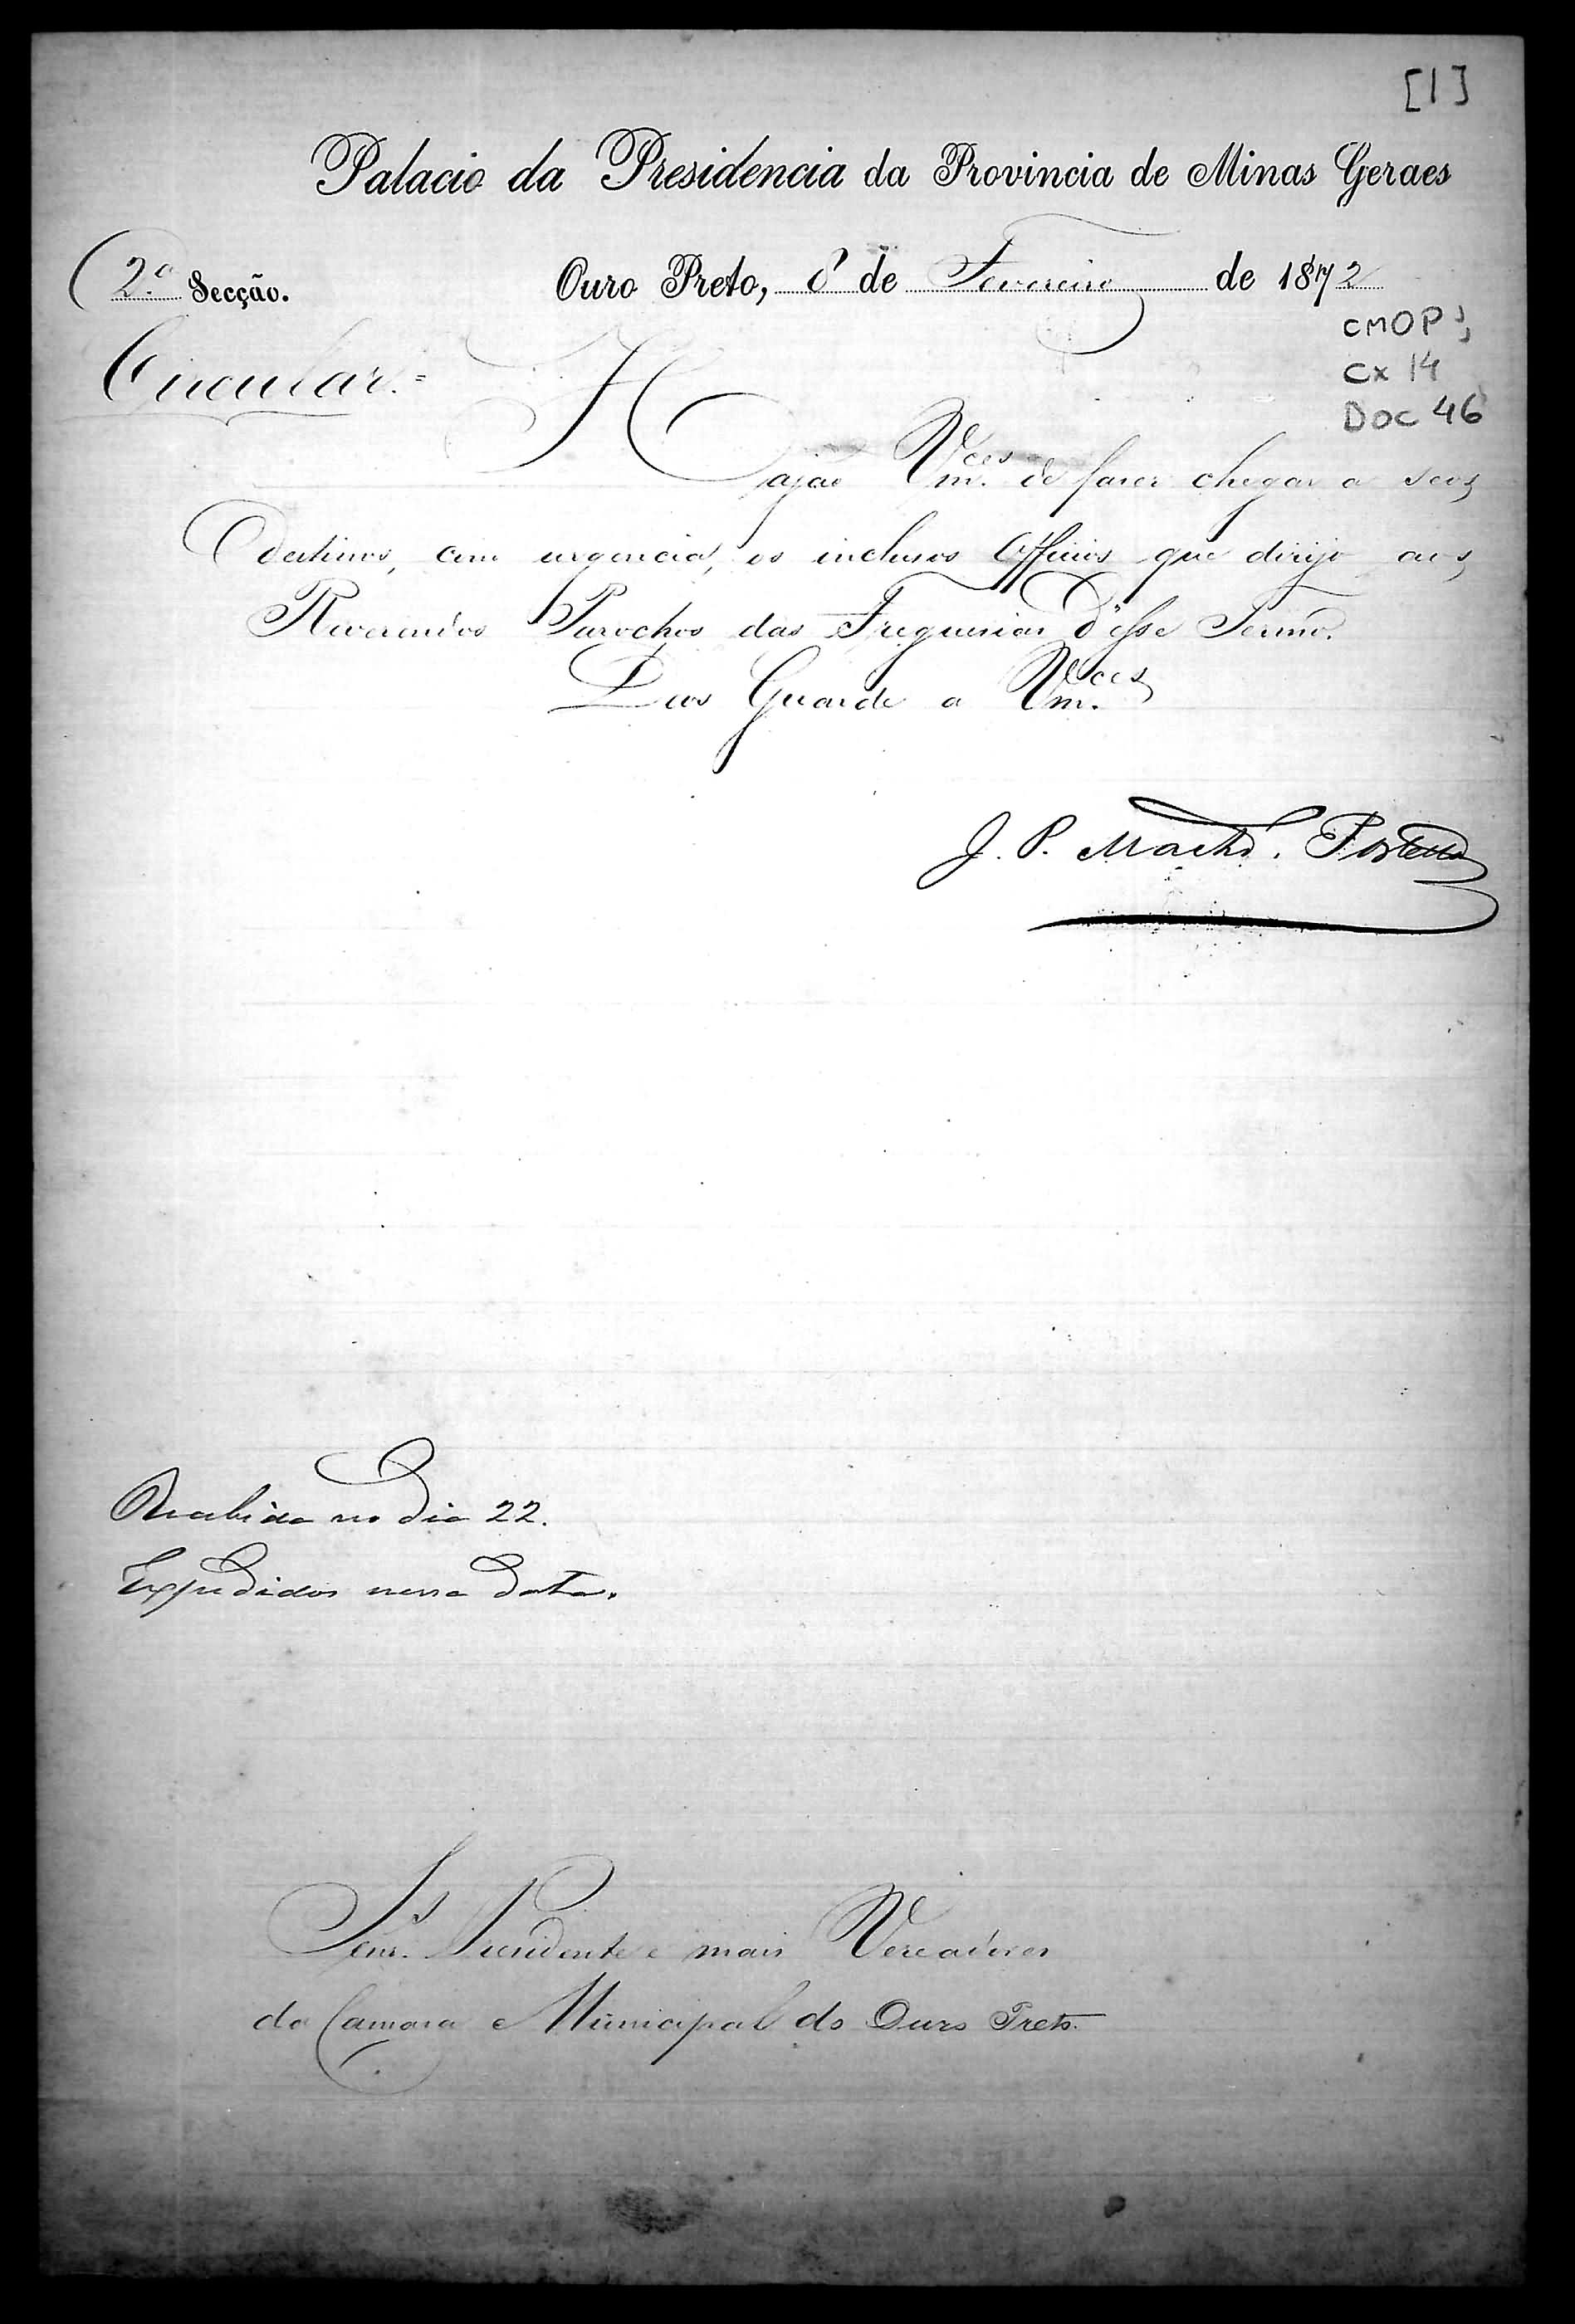 [1]
Palacio da Presidencia da Provincia de Minas Geraes
2.ª Secção. Ouro Preto, 8 de Fevereiro de 1872
CMOP
Cx 14
DOC 46
Circular.=
Hajão Vm.ces de faser chegar a seos
destinos, com urgencia, os inclusos Officios que dirijo aos
Reverendos Parochos das Freguesias d'esse Termo.
Deos Guarde a Vm.ces
J. P. Machd.º Portella
Recebida no dia 22.
Expedidos nessa data.
Senr.s Presidente e mais Vereadores
da Camara Municipal do Ouro Preto.